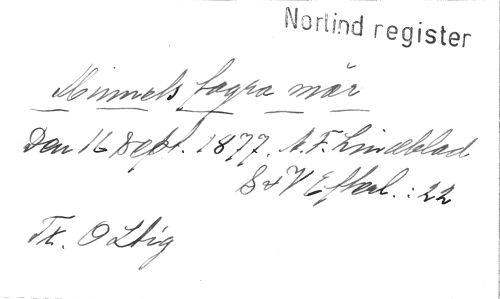 Norlind register
Minnets fagra mär
Den 16 Sept. 1877. A. F. Lindblad
S & V Efterl.: 22
Tr. O Lbig